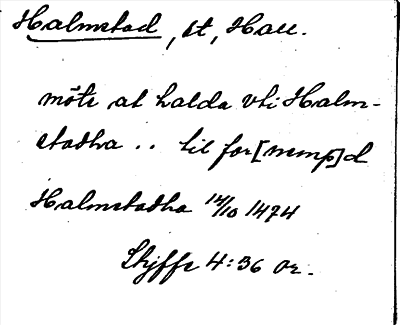 Halmstad, st, Hall.
möte at halda vti Halm-
stadha .. til for[nemp]d
Halmstadha 14/10 1474
Styffe 4:36 or.